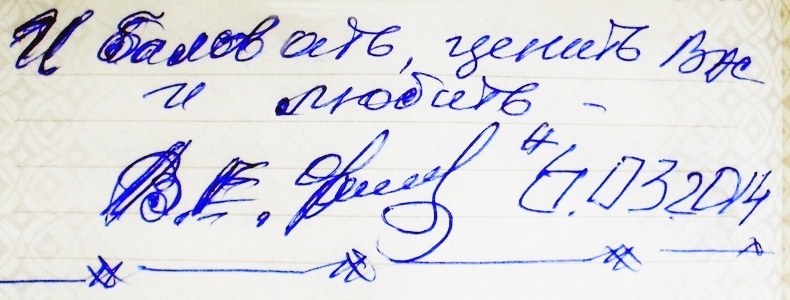 И баловать, ценить Вас
и любить -
В.Е.
.03.2014